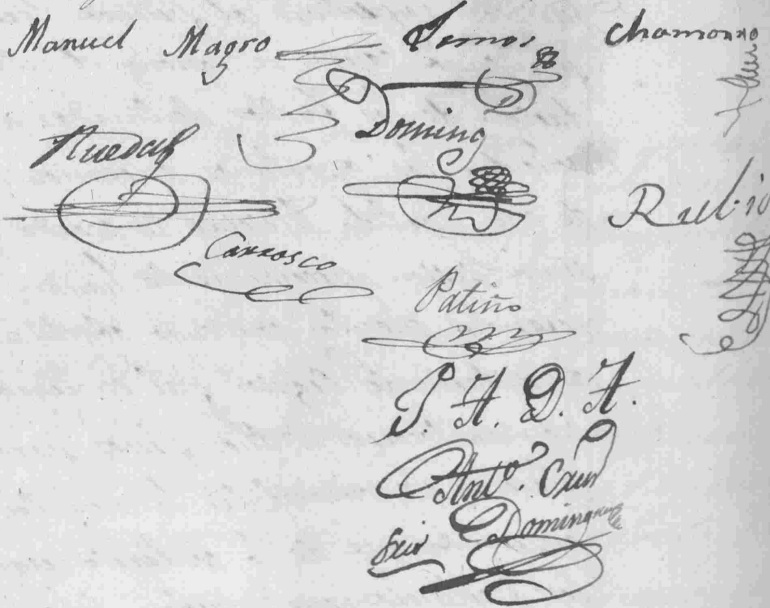 Manuel Magro Lemos Chamorro
Ruedas Doming
Rubio
Carrasco
Patiño
P. A. D. A.
Anto. Cruz
Dominguez
Srio